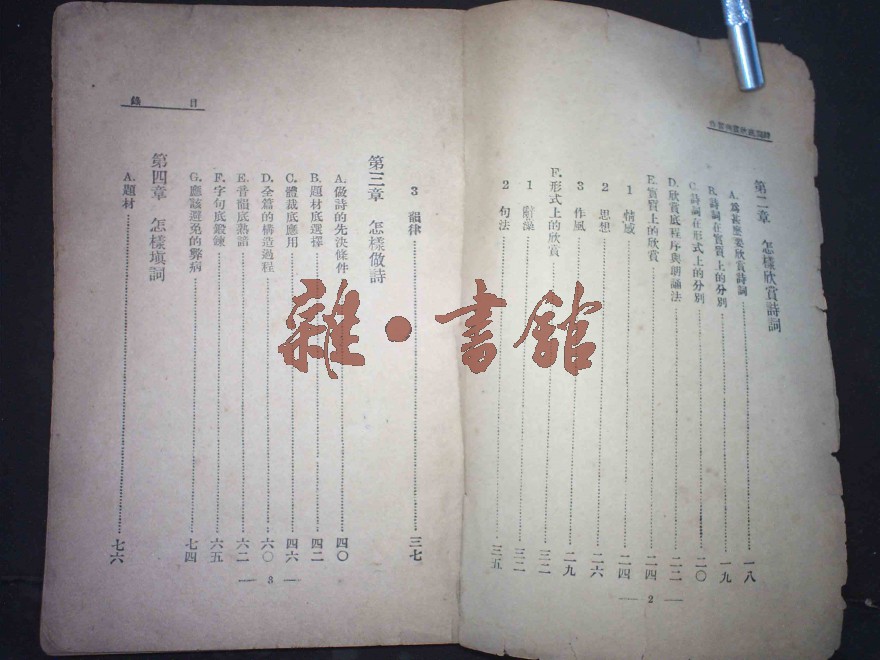 第二章 怎樣欣賞詩詞
A. 爲甚麼要欣賞詩詞……一八
B. 詩詞在實質上的分別……一九
C. 詩詞在形式上的分別……二〇
D. 欣賞底程序與朗誦法……二二
E. 實質上的欣賞……二四
1 情感……二四
2 思想……二六
3 作風……二九
F. 形式上的欣賞……三二
1 辭藻……三二
2 句法……三五
— 2 —
目錄
3 韻律……三七
第三章 怎樣做詩
A. 做詩的先決條件……四〇
B. 題材底選擇……四二
C. 體裁底應用……四六
D. 全篇的構造過程……六〇
E. 音韻底熟諳……六二
F. 字句底鍛鍊……六五
G. 應該避免的弊病……七四
第四章 怎樣填詞
A. 題材……七六
— 3 —
雜·書館